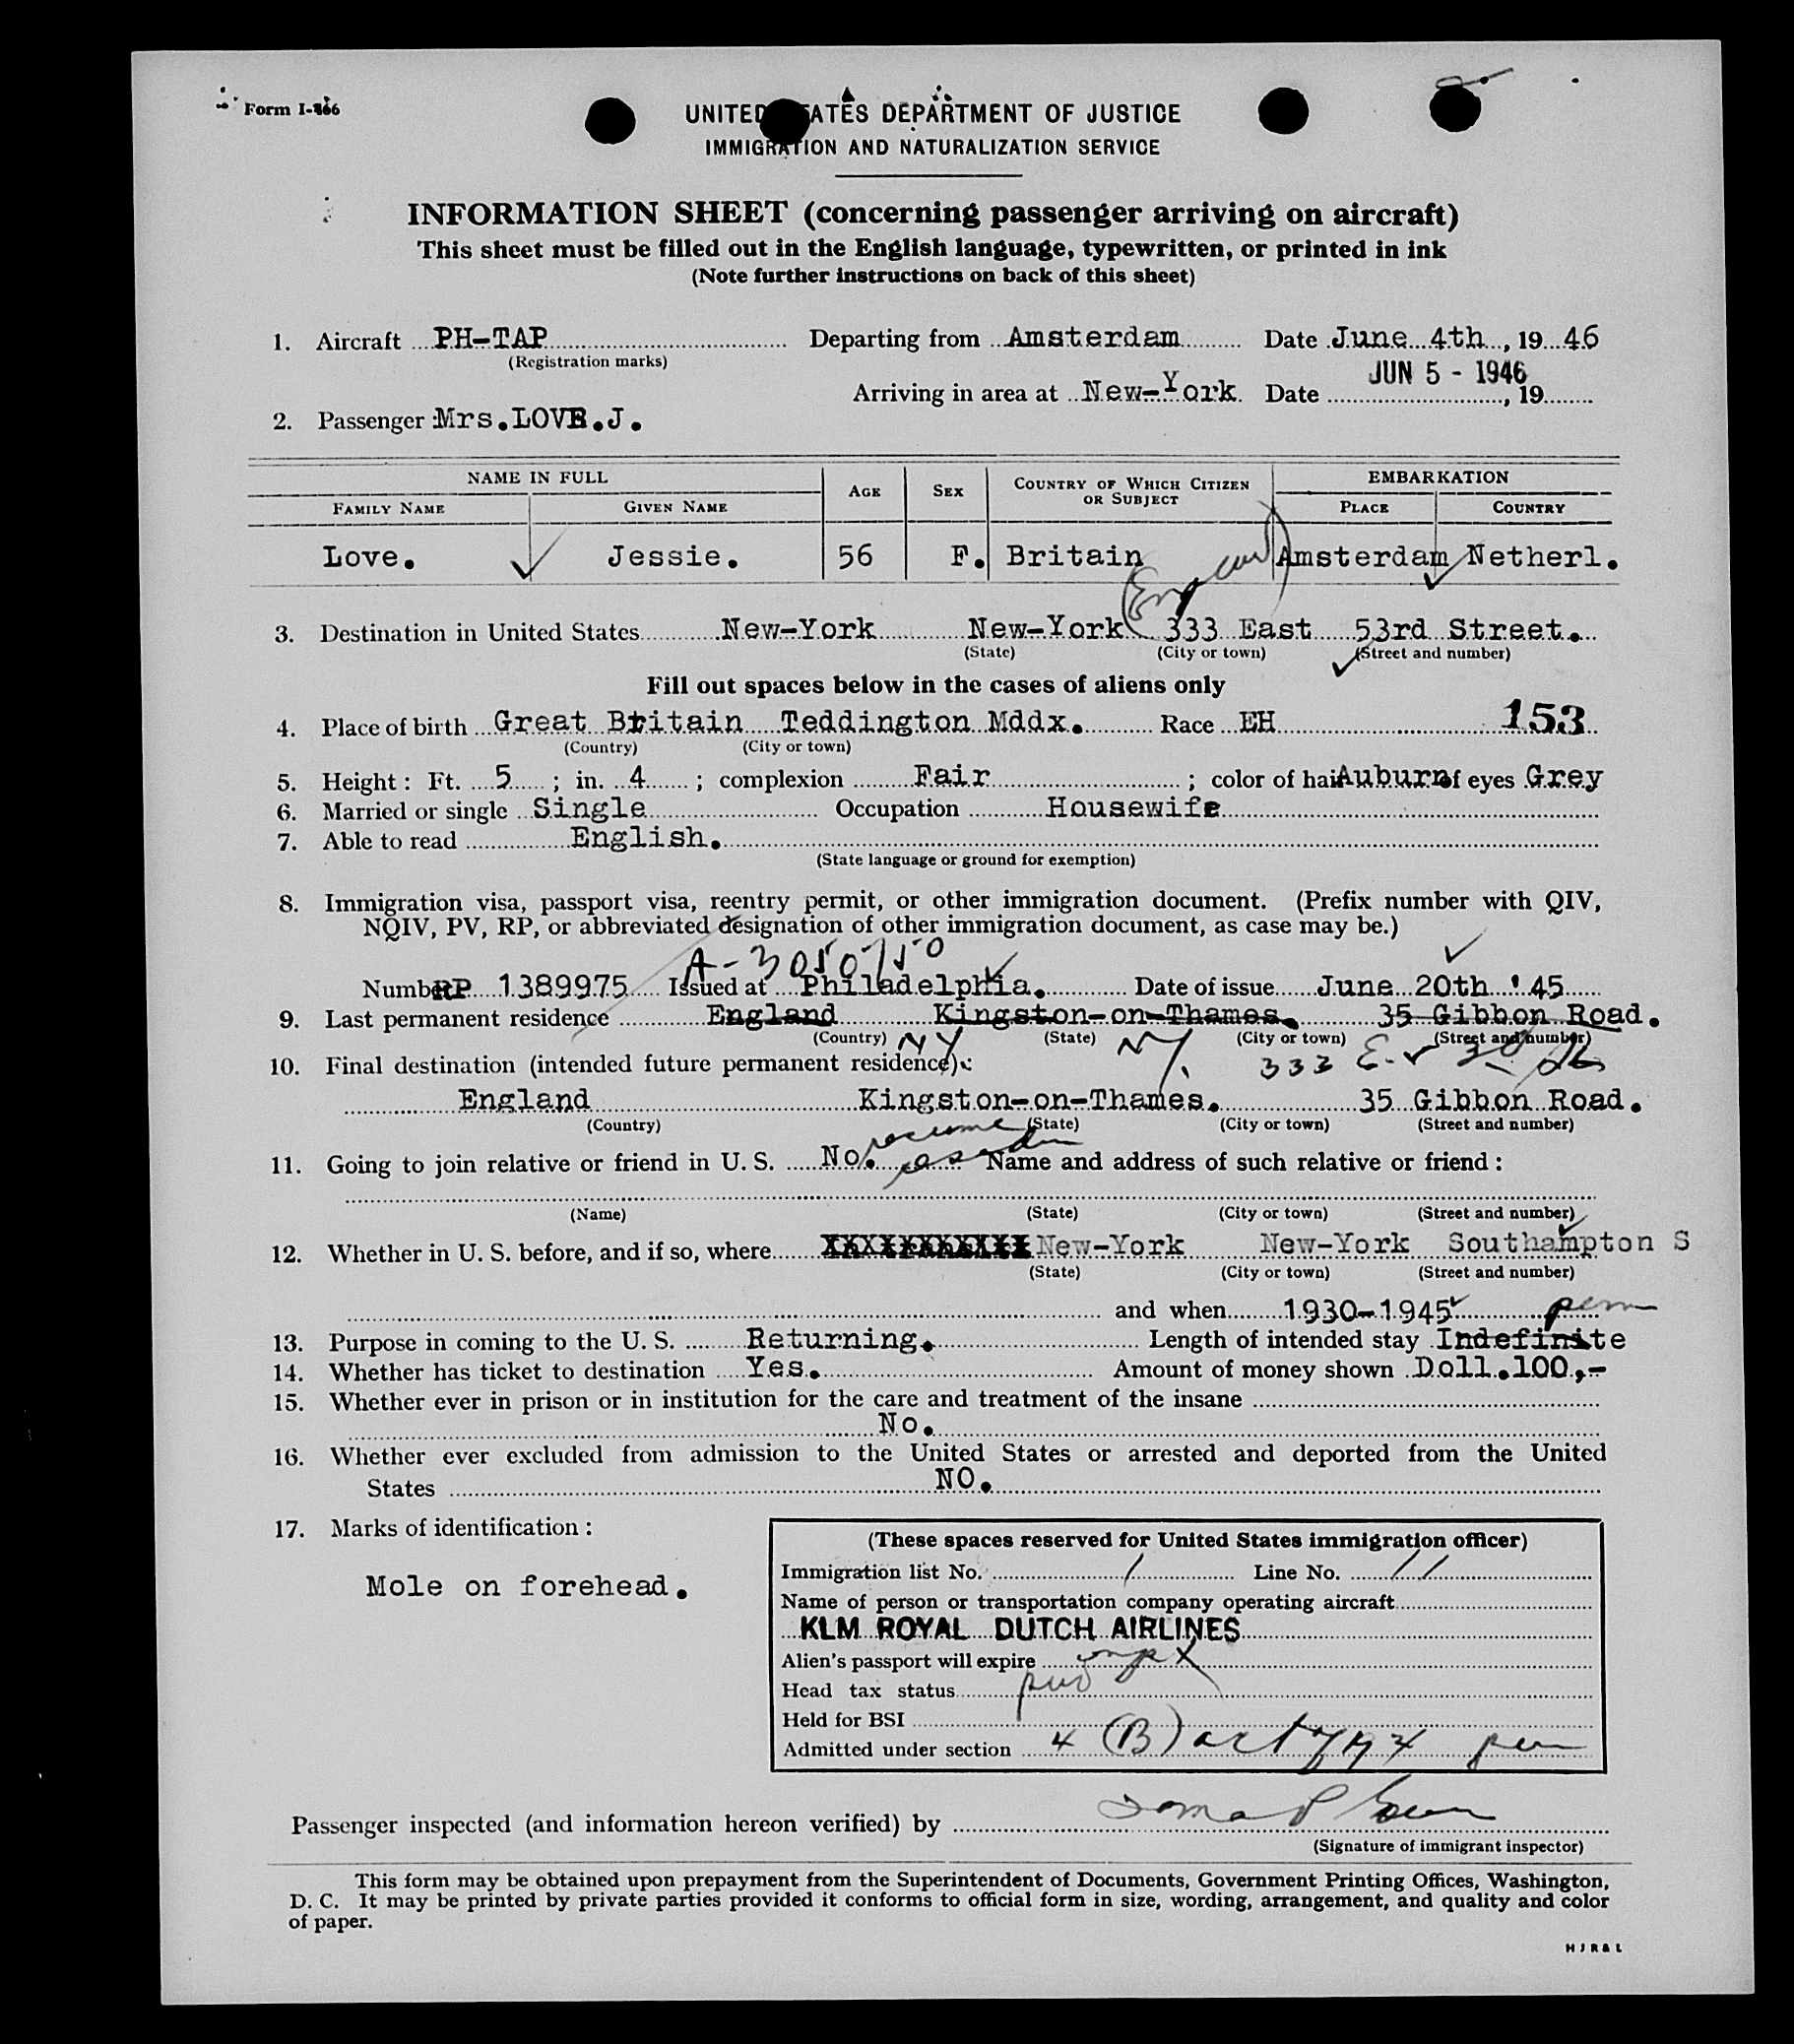 Form I-466
UNITED STATES DEPARTMENT OF JUSTICE
IMMIGRATION AND NATURALIZATION SERVICE
INFORMATION SHEET (concerning passenger arriving on aircraft)
This sheet must be filled out in the English language, typewritten, or printed in ink
(Note further instructions on back of this sheet)
1. Aircraft PH-TAP Departing from Amsterdam Date June 4th, 19 46
(Registration marks)
JUN 5 - 1946
Arriving in area at New-York Date , 19
2. Passenger Mrs. LOVE. J.
NAME IN FULL AGE SEX COUNTRY OF WHICH CITIZEN OR SUBJECT EMBARKATION
FAMILY NAME GIVEN NAME PLACE COUNTRY
Love. Jessie. 56 F. Britain Amsterdam Netherl.
3. Destination in United States New-York New-York 333 East 53rd Street.
(State) (City or town) (Street and number)
Fill out spaces below in the cases of aliens only
4. Place of birth Great Britain Teddington Mddx. Race EH 153
(Country) (City or town)
5. Height: Ft. 5 ; in. 4 ; complexion Fair ; color of hair Auburn of eyes Grey
6. Married or single Single Occupation Housewife
7. Able to read English.
(State language or ground for exemption)
8. Immigration visa, passport visa, reentry permit, or other immigration document. (Prefix number with QIV,
NQIV, PV, RP, or abbreviated designation of other immigration document, as case may be.)
A-3050750
Number RP 1389975 Issued at Philadelphia. Date of issue June 20th '45
9. Last permanent residence England Kingston-on-Thames. 35 Gibbon Road.
(Country) (State) (City or town) (Street and number)
NY NY. 333 E.
10. Final destination (intended future permanent residence):
England Kingston-on-Thames. 35 Gibbon Road.
(Country) (State) (City or town) (Street and number)
resume
11. Going to join relative or friend in U. S. No. Name and address of such relative or friend:
(Name) (State) (City or town) (Street and number)
12. Whether in U. S. before, and if so, where New-York New-York Southampton S
(State) (City or town) (Street and number)
and when 1930-1945 perm
13. Purpose in coming to the U. S. Returning. Length of intended stay Indefinite
14. Whether has ticket to destination Yes. Amount of money shown Doll.100,-
15. Whether ever in prison or in institution for the care and treatment of the insane
No.
16. Whether ever excluded from admission to the United States or arrested and deported from the United
States NO.
17. Marks of identification:
Mole on forehead.
(These spaces reserved for United States immigration officer)
Immigration list No. 1 Line No. 11
Name of person or transportation company operating aircraft
KLM ROYAL DUTCH AIRLINES
Alien's passport will expire
Head tax status
Held for BSI
Admitted under section 4 (B) act of 1924
Passenger inspected (and information hereon verified) by
(Signature of immigrant inspector)
This form may be obtained upon prepayment from the Superintendent of Documents, Government Printing Offices, Washington,
D. C. It may be printed by private parties provided it conforms to official form in size, wording, arrangement, and quality and color
of paper.
H J R & L